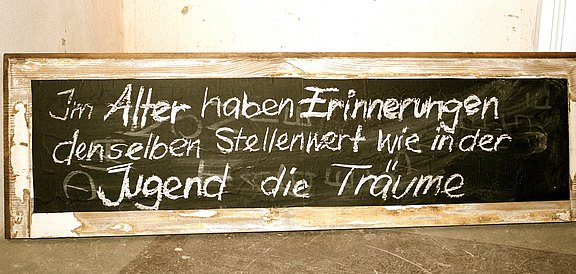 Im Alter haben Erinnerungen
denselben Stellenwert wie in der
Jugend die Träume